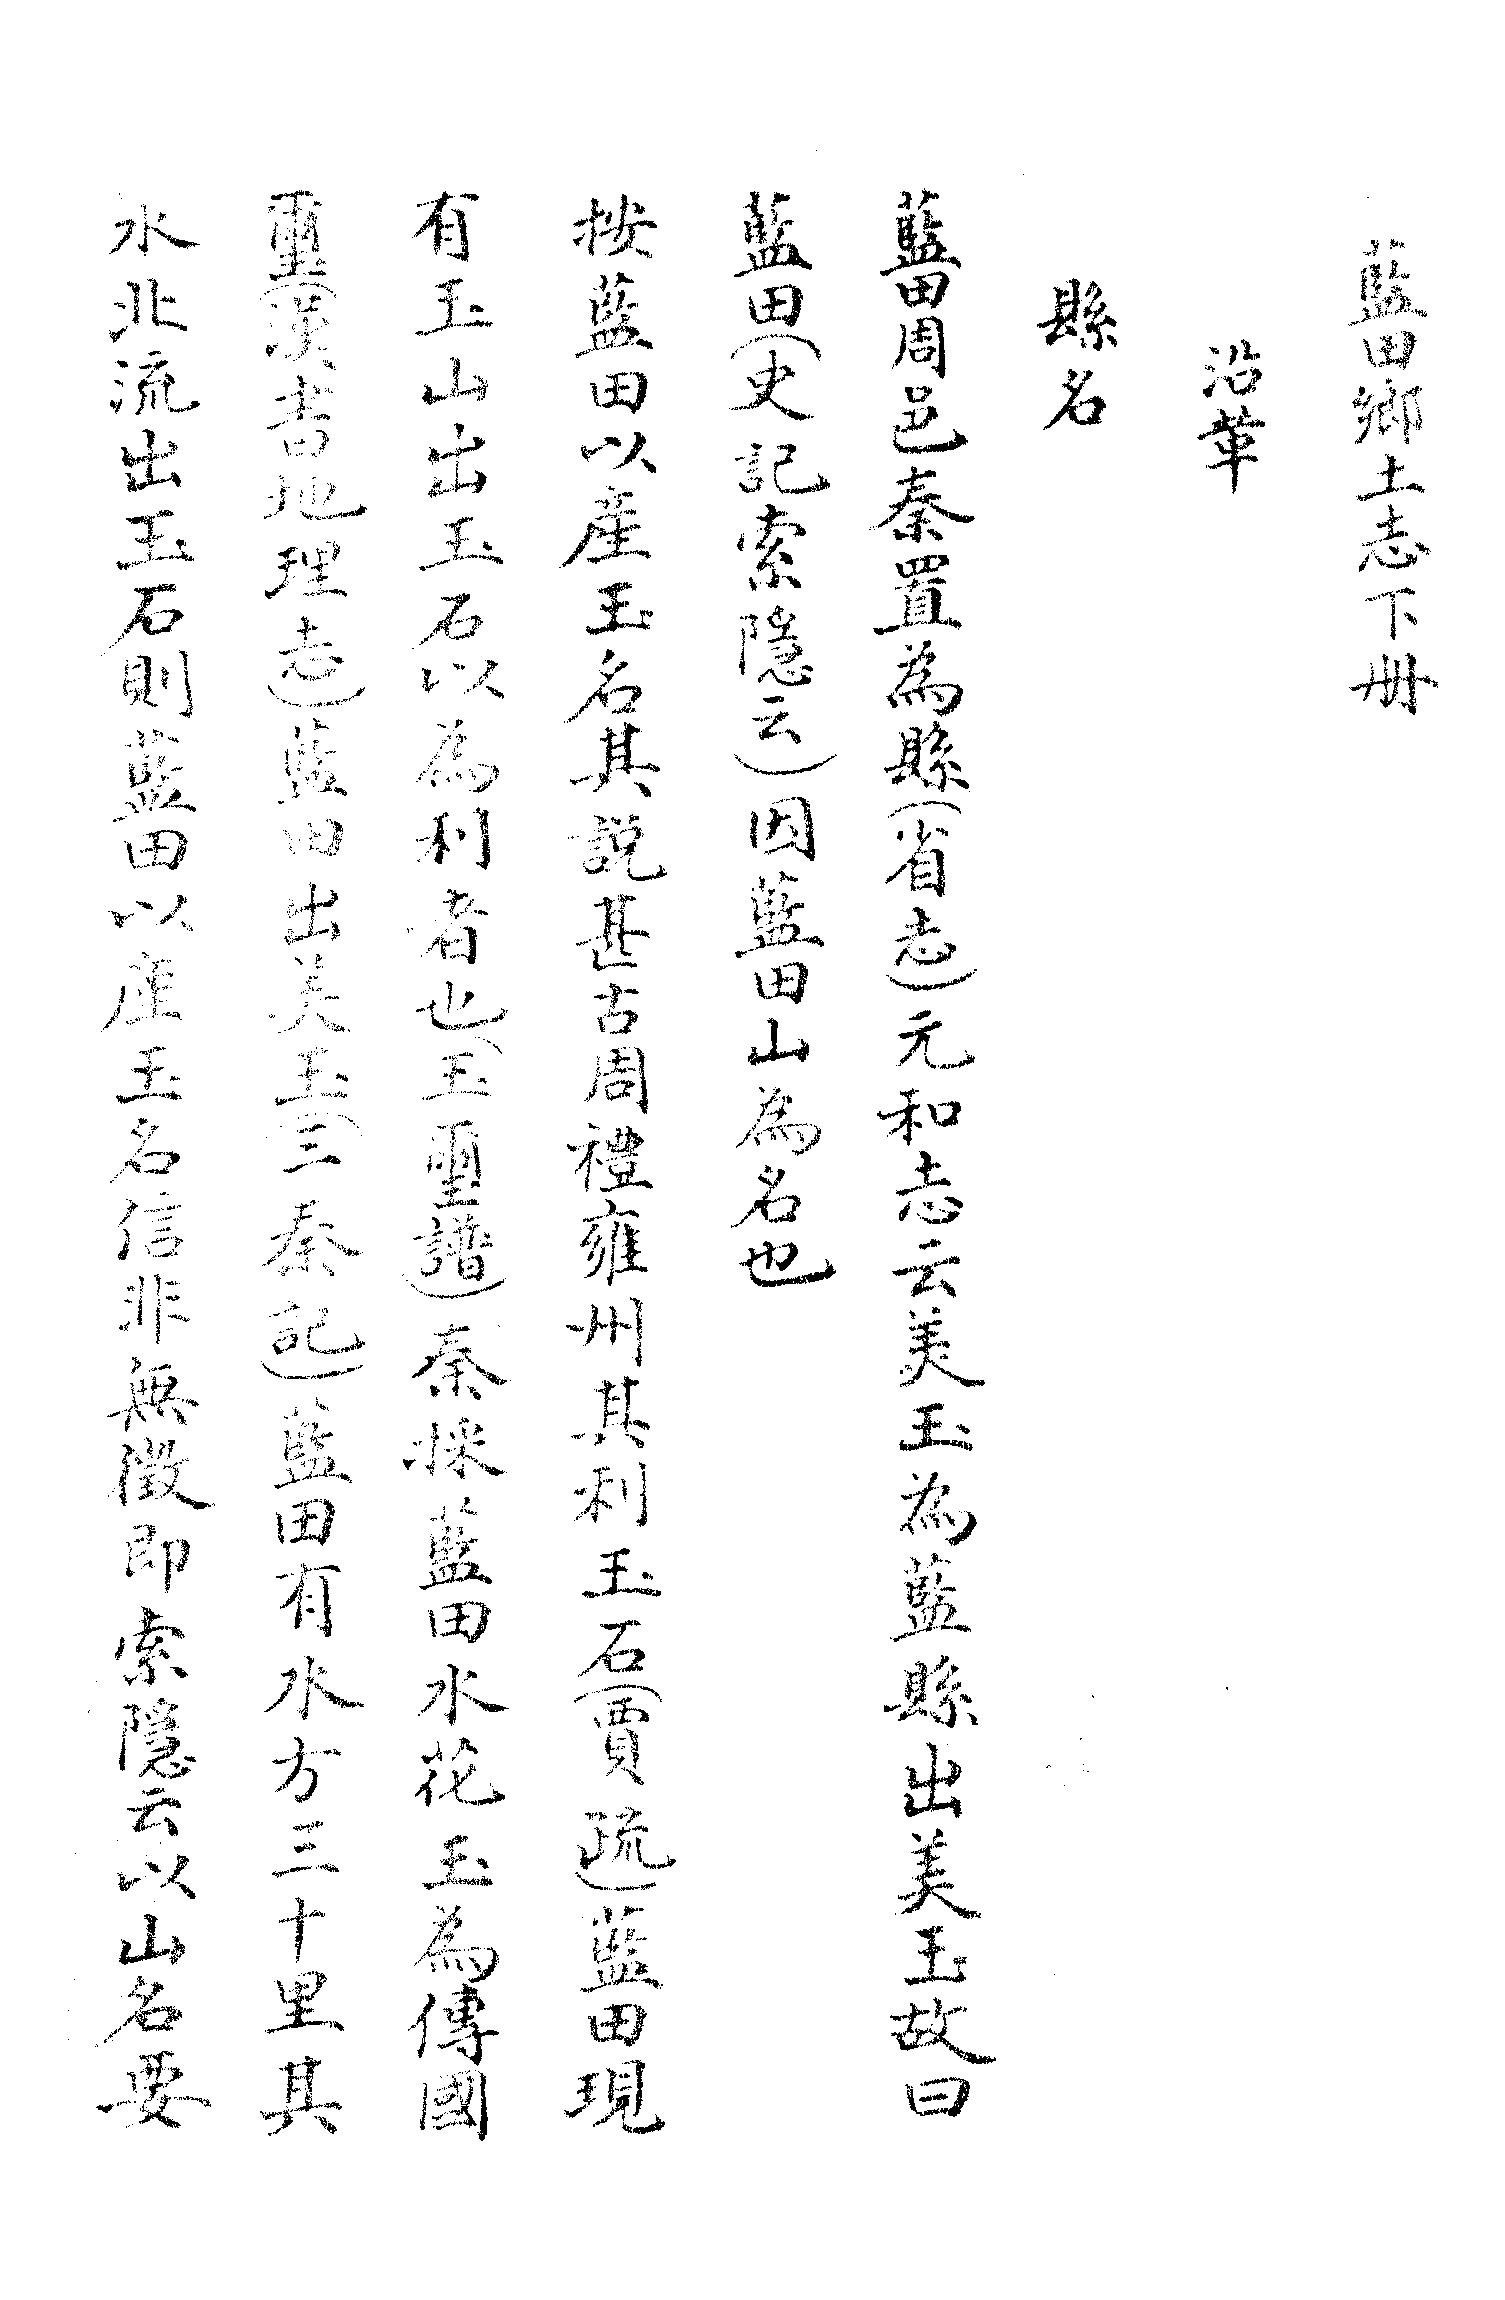 藍田鄉土志下冊
沿革
縣名
藍田周邑秦置為縣(省志)元和志云美玉為藍縣出美玉故曰
藍田(史記索隱云)因藍田山為名也
按藍田以產玉名其說甚古周禮雍州其利玉石(賈疏)藍田現
有玉山出玉石以為利者也(玉璽譜)秦採藍田水花玉為傳國
璽(漢書地理志)藍田出美玉(三秦記)藍田有水方三十里其
水北流出玉石則藍田以產玉名信非無徵即索隱云以山名要